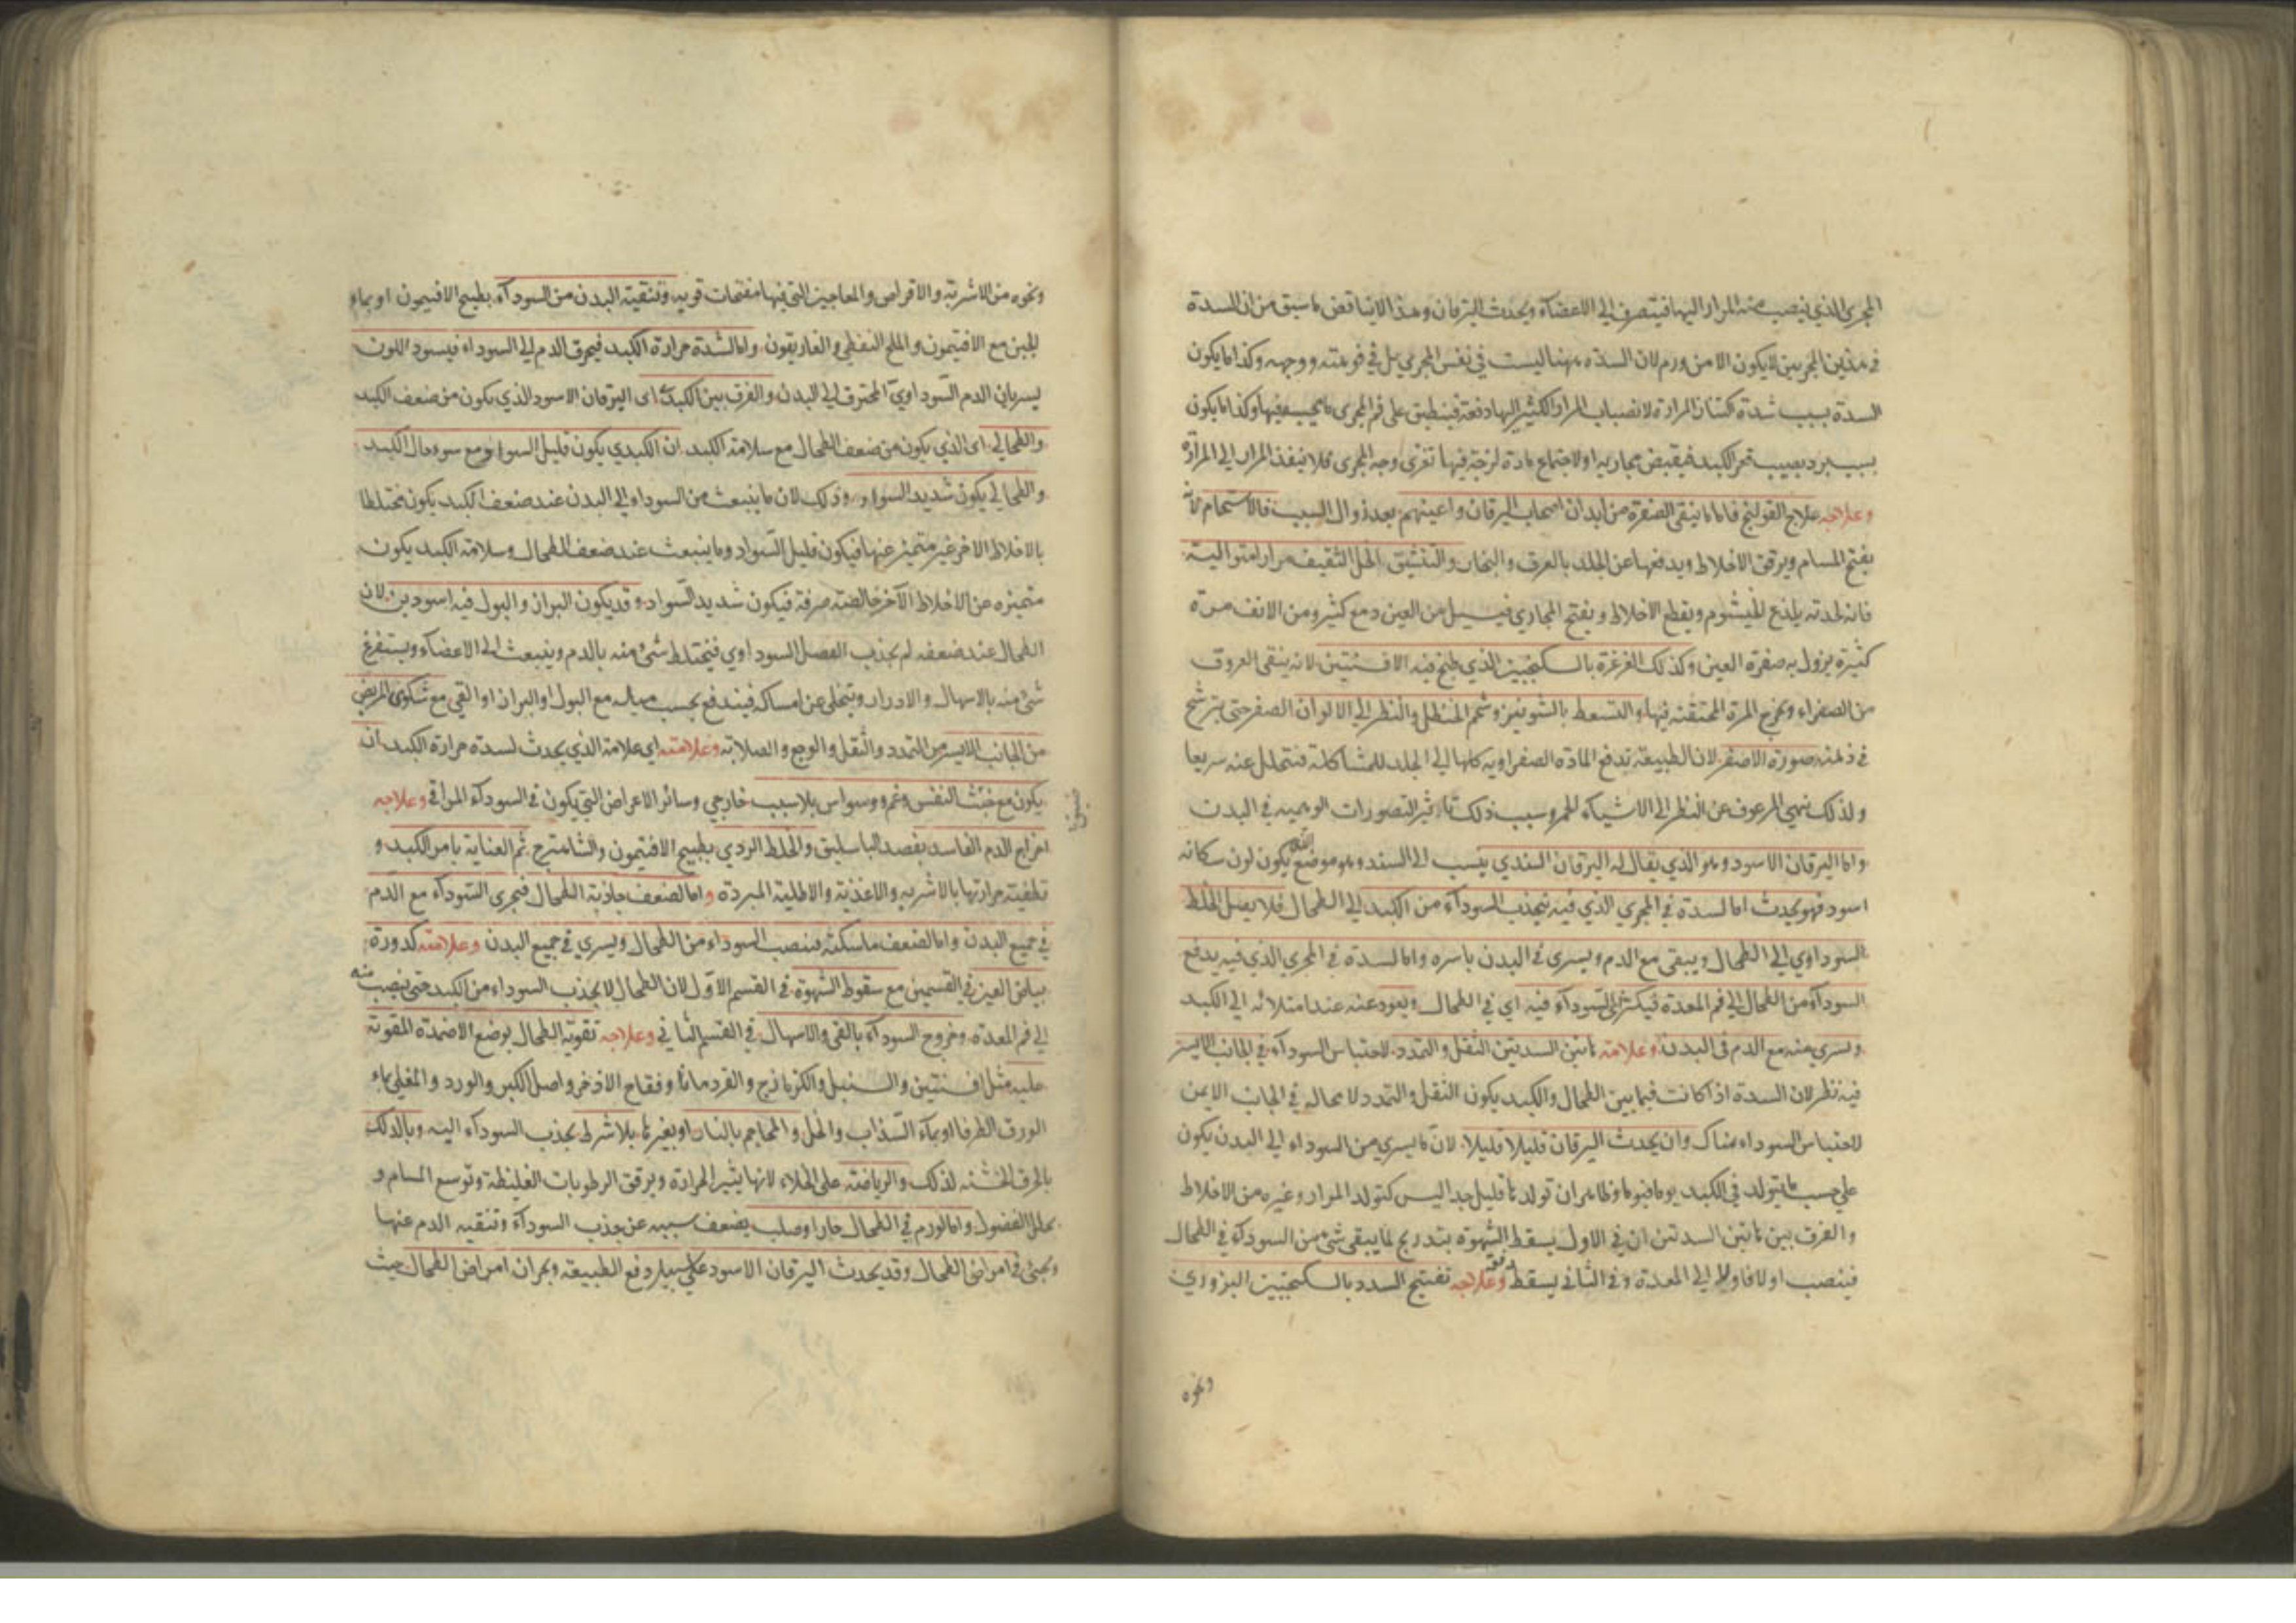 المجرى الذي ينصب منه المرار اليها فيتصرف الى الاعضاء ويحدث اليرقان وهذا لا يناقض ما سبق من ان السدة
في هذين المجريين لا يكون الا من ورم لان السدة ههنا ليست في نفس المجرى بل في فوهته ووجهه وكذا ما يكون
السدة بسبب شدة المرارة لانصباب المرار الكثير اليها دفعة فينطبق على فم المجرى ما يحبسه فيها وكذا ما يكون
بسبب برد يصيب مقعر الكبد فيقبض مجاريه او لاجتماع مادة لزجة فيها تغرى وجه المجرى فلا ينفذ المرار الى المرارة
وعلاجه علاج القولنج فاما ما ينقى الصفرة من ابدان اصحاب اليرقان واعينهم بعد زوال السبب فالاستحمام لانه
يفتح المسام ويرقق الاخلاط ويدفعها عن الجلد بالعرق والبخار والتنشيق الخل الثقيف مرارا متوالية
فانه لحدته يلذع الخيشوم ويقطع الاخلاط ويفتح المجاري فيسيل من العين دمع كثير ومن الانف مرة
كثيرة يزول به صفرة العين وكذلك الغرغرة بالسكنجبين الذي طبخ فيه الافسنتين لانه ينقى العروق
من الصفراء ويخرج المرة المحتقنة فيها والتسعط بالشونيز وشحم الحنظل والنظر الى الالوان الصفر حتى يترشح
في ذهنه صورة الاصفر لان الطبيعة تدفع المادة الصفراوية كلها الى الجلد للمشاكلة فتتحلل عنه سريعا
ولذلك نهي المرعوف عن النظر الى الاشياء الحمر وسبب ذلك تاثير التصورات الوهمية في البدن
واما اليرقان الاسود وهو الذي يقال له اليرقان السندي ينسب الى السند وهو موضع يكون لون سكانه
اسود فهو يحدث اما لسدة في المجرى الذي فيه ينجذب السوداء من الكبد الى الطحال فلا يصل الخلط
السوداوي الى الطحال ويبقى مع الدم ويسرى في البدن باسره واما لسدة في المجرى الذي فيه يدفع
السوداء من الطحال الى فم المعدة فيكثر السوداء فيه اي في الطحال ويعود عنه عند امتلائه الى الكبد
ويسري منه مع الدم في البدن وعلامة هاتين السدتين الثقل والتمدد لاحتباس السوداء في الجانب الايسر
فيه نظر لان السدة اذا كانت فيما بين الطحال والكبد يكون الثقل والتمدد لا محالة في الجانب الايمن
لاحتباس السوداء هناك وان يحدث اليرقان قليلا قليلا لان ما يسري من السوداء الى البدن يكون
على حسب ما يتولد في الكبد يوما فيوما وظاهر ان تولدها قليل جدا ليس كتولد المرار وغيره من الاخلاط
والفرق بين هاتين السدتين ان في الاول يسقط الشهوة بتدريج لما يبقى شئ من السوداء في الطحال
فينصب اولا فاولا الى المعدة وفي الثاني يسقط دفعة وعلاجه تفتيح السدد بالسكنجبين البزوري
ونحوه
ونحوه من الاشربة والاقراص والمعاجين التي فيها مفتحات قوية وتنقية البدن من السوداء بطبيخ الافتيمون او بماء
الجبن مع الافتيمون والملح النفطي والغاريقون واما لشدة حرارة الكبد فيحرق الدم الى السوداء فيسود اللون
بسريان الدم السوداوي المحترق الى البدن والفرق بين الكبدي اى اليرقان الاسود الذي يكون من ضعف الكبد
والطحالي اى الذي يكون من ضعف الطحال مع سلامة الكبد ان الكبدي يكون قليل السواد ومع سوء حال الكبد
والطحالي يكون شديد السواد وذلك لان ما ينبعث من السوداء الى البدن عند ضعف الكبد يكون مختلطا
بالاخلاط الاخر غير متميز عنها فيكون قليل السواد وما ينبعث عند ضعف الطحال وسلامة الكبد يكون
متميزه من الاخلاط الآخر خالصة صرفة فيكون شديد السواد وقد يكون البراز والبول فيه اسودين لان
الطحال عند ضعفه لم يجذب الفضل السوداوي فيختلط شئ منه بالدم وينبعث الى الاعضاء ويستفرغ
شئ منه بالاسهال والادرار ويتخلى عن امساكه فيندفع بحسب ميله مع البول او البراز او القئ مع شكوى المريض
من الجانب الايسر من التمدد والثقل والوجع والصلابة وعلامته اي علامة الذي يحدث لشدة حرارة الكبد ان
يكون مع خبث النفس وغم ووسواس بلا سبب خارجي وسائر الاعراض التي يكون في السوداء المراقي وعلاجه
اخراج الدم الفاسد بفصد الباسليق والخلط الردي بطبيخ الافتيمون والشاهترج ثم العناية بامر الكبد و
تطفئة حرارتها بالاشربة والاغذية والاطلية المبردة واما لضعف جاذبة الطحال فيجرى السوداء مع الدم
في جميع البدن واما لضعف ماسكته فينصب السوداء من الطحال ويسري في جميع البدن وعلامته كدورة
بياض العين في القسمين مع سقوط الشهوة في القسم الاول لان الطحال لا يجذب السوداء من الكبد حتى ينصب منه
الى فم المعدة وخروج السوداء بالقئ والاسهال في القسم الثاني وعلاجه تقوية الطحال بوضع الاضمدة المقوية
عليه مثل افسنتين والسنبل والكزمازج والقردمانا وفقاح الاذخر واصل الكبر والورد والمغلي بماء
الورق الطرفا او بماء السذاب والخل والمحاجم بالنار او بغيرها بلا شرط بجذب السوداء اليه وبالدلك
بالخرق الخشنة لذلك والرياضة على الخلاء لانها يثير الحرارة ويرقق الرطوبات الغليظة وتوسع المسام و
يحلل الفضول واما لورم في الطحال حار او صلب يضعف بسببه عن جذب السوداء وتنقيه الدم عنها
ويجئ في امراض الطحال وقد يحدث اليرقان الاسود على سبيل دفع الطبيعة وبحران امراض الطحال حيث